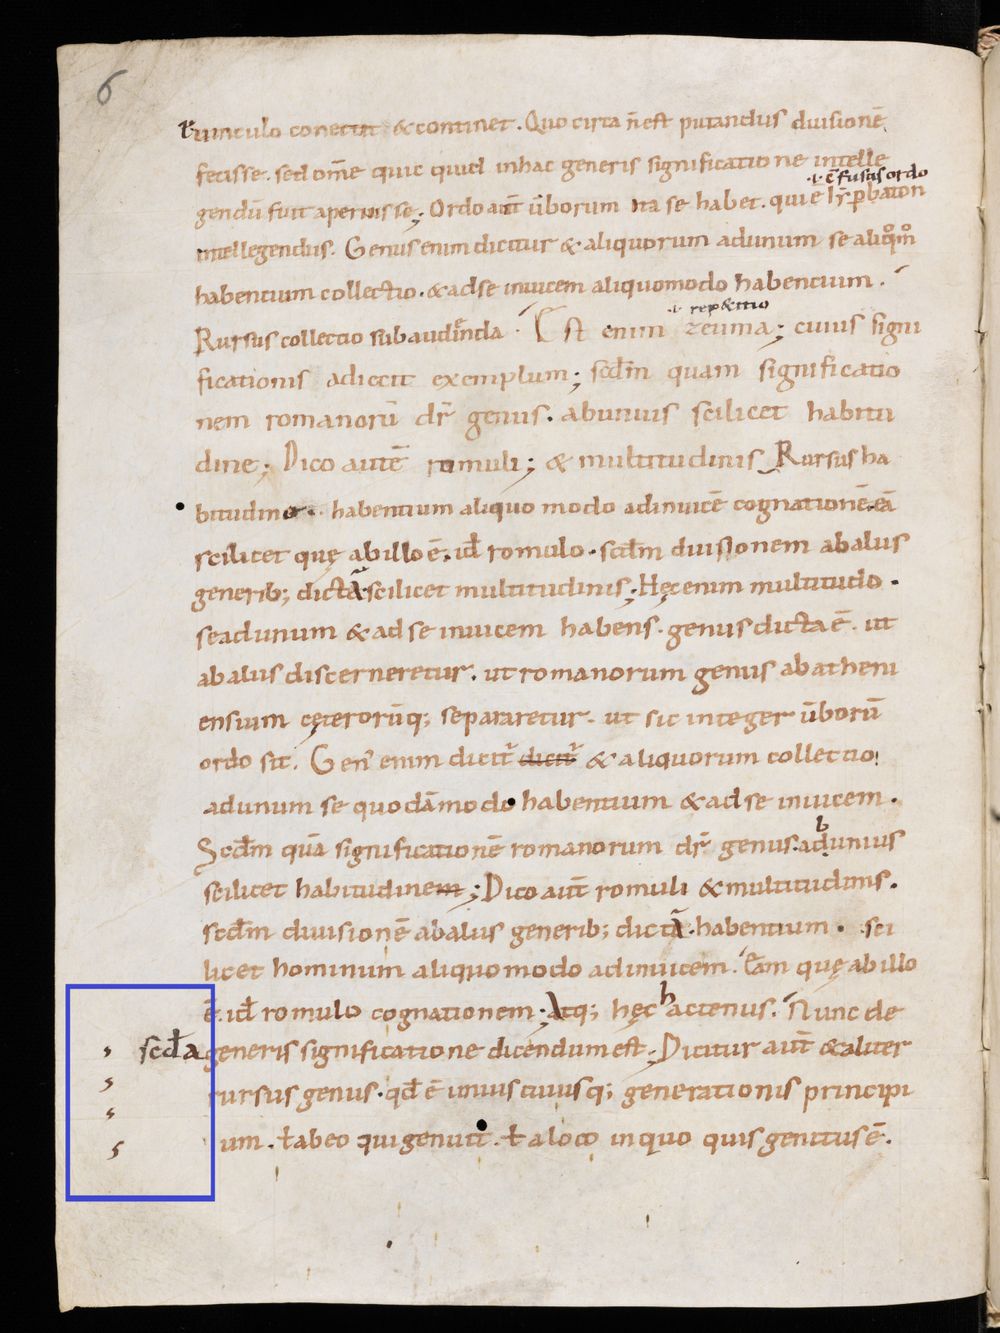 6
funculo conectit &continet. Quo circa ñest putandus diuisionē
fecisse. sed om̄e quic quid inhac generis significatio ne intelle
.i. cōfusus ordo
gendū fuit aperuisse; Ordo aut̄ ūborum ita se habet. qui ē
intellegendus. Genus enim dicitur & aliquorum adunum se aliq°m°
habentium collectio. & adse inuicem aliquomodo habentium.
.i. rep&itio
Rursus collectio subaudienda. Est enim zeuma; cuius signi
ficationis adiecit exemplum; scdm̄ quam significatio
nem romanorū dr̄ genus. abunius scilicet habitu
dine; Dico autē romuli; & multitudinis Rursus ha
bitudine. habentium aliquo modo adinuicē cognationē. eā
scilicet quę abillo ē. id̄ romulo. scdm̄ diuisionem abalus
generib; dictā scilicet multitudinis; Hęc enim multitudo.
seadunum & ad se inuicem habens. genus dicta ē. ut
abalus discerneretur. ut romanorum genus abatheni
ensium cęterorūq; separaretur. ut sic integer ūborū
ordo sit. Gen' enim dicit̄ dicit̄ & aliquorum collectio
adunum se quodāmodo habentium & ad se inuicem.
b
Scdm̄ quā significationē romanorum dr̄ genus. adunius
scilicet habitudinem; Dico aut̄ romuli & multitudinis.
scdm̄ diuisionē abalus generib; dictā. habentium. sci
licet hominum aliquo modo adinuicem. Eam quę abillo
ē. id̄ romulo cognationem; Atq; hęc hactenus. Nunc de
scd̄a generis significatione dicendum est; Dicitur aut̄ & aliter
rursus genus. qd̄ ē unius cuiusq; generationis principi
um. ł abeo qui genuit. ł a loco in quo quis genitus ē.